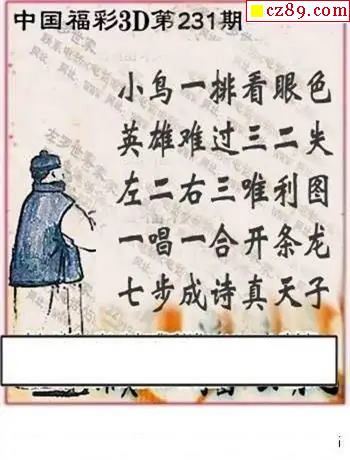 cz89.com
中国福彩3D第231期
小鸟一排看眼色
英雄难过三二失
左二右三唯利图
一唱一合开条龙
七步成诗真天子
i